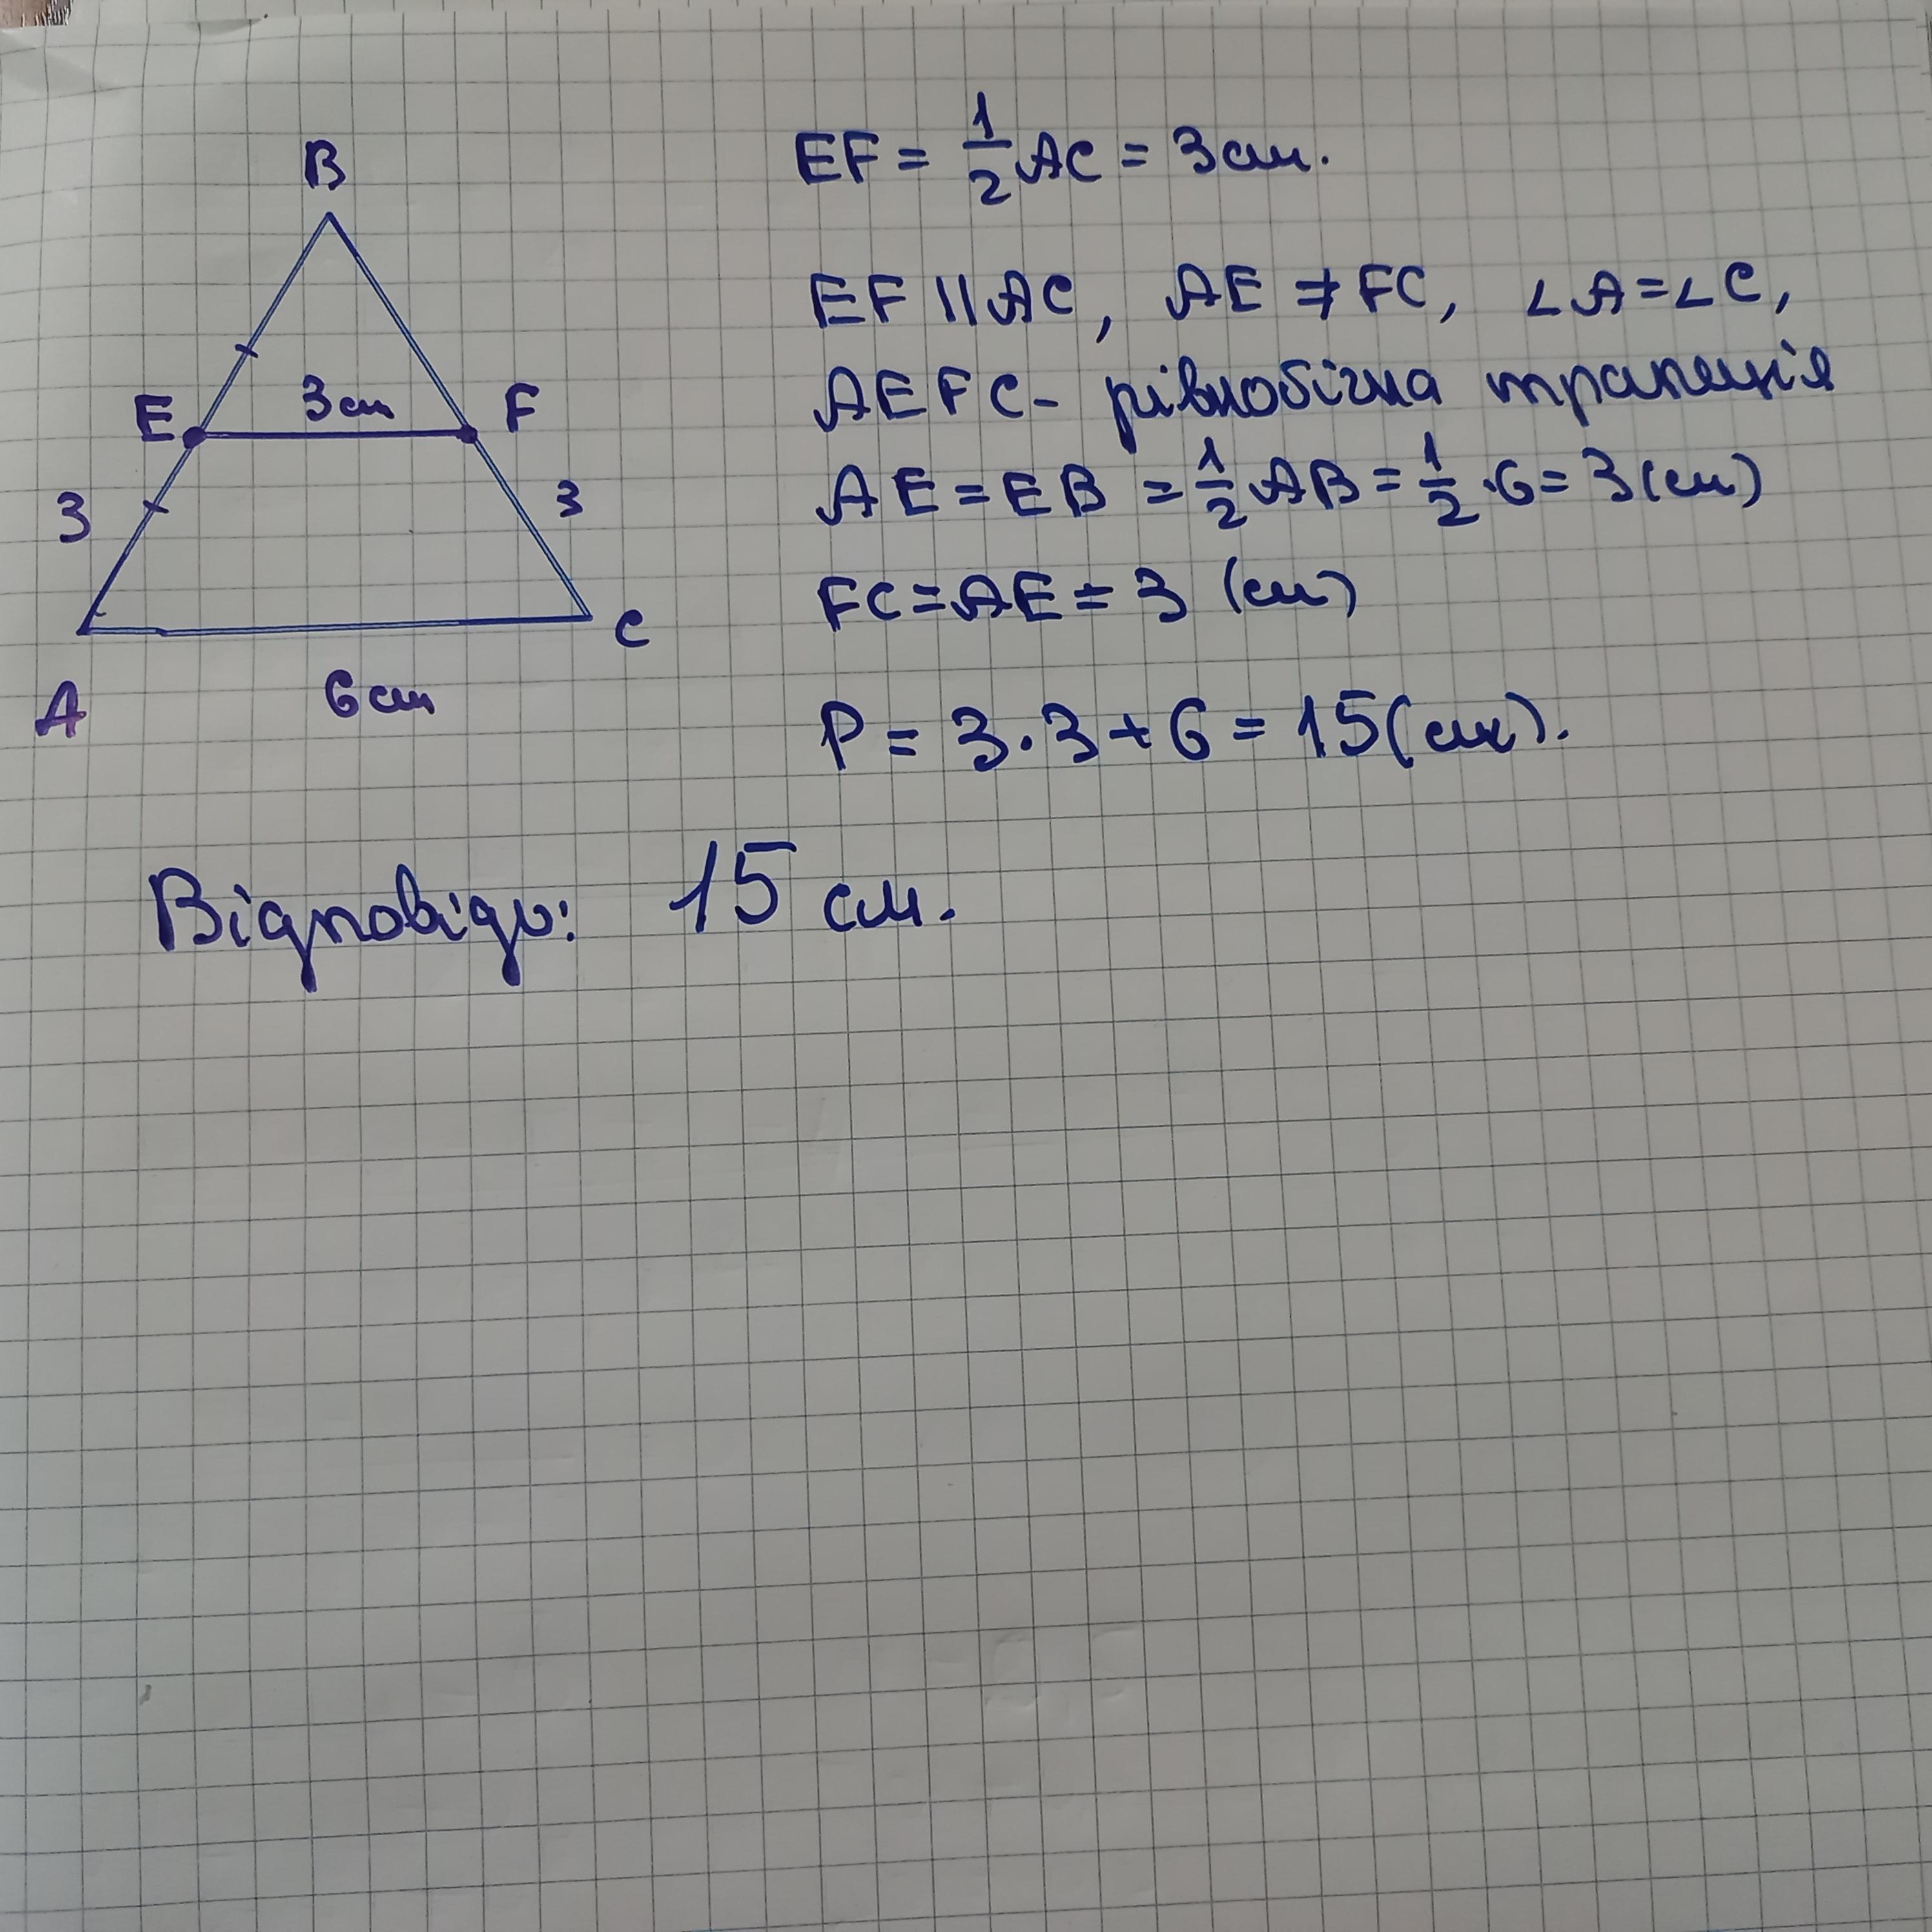 B
E 3 см F
3 3
A C
6 см
EF = 1/2 AC = 3 см.
EF || AC, AE ≠ FC, ∠A = ∠C,
AEFC - рівнобічна трапеція
AE = EB = 1/2 AB = 1/2 · 6 = 3 (см)
FC = AE = 3 (см)
P = 3 · 3 + 6 = 15 (см).
Відповідь: 15 см.